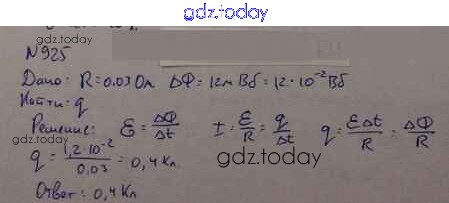 gdz.today
gdz.today
N 925
Дано: R=0.03 Ом ΔФ = 12м Вб = 12·10⁻² Вб
Найти: q
Решение: ℰ = ΔФ/Δt I = ℰ/R = q/Δt q = ℰΔt/R = ΔФ/R
q = 1,2·10⁻²/0,03 = 0,4 Кл.
gdz.today
Ответ: 0,4 Кл